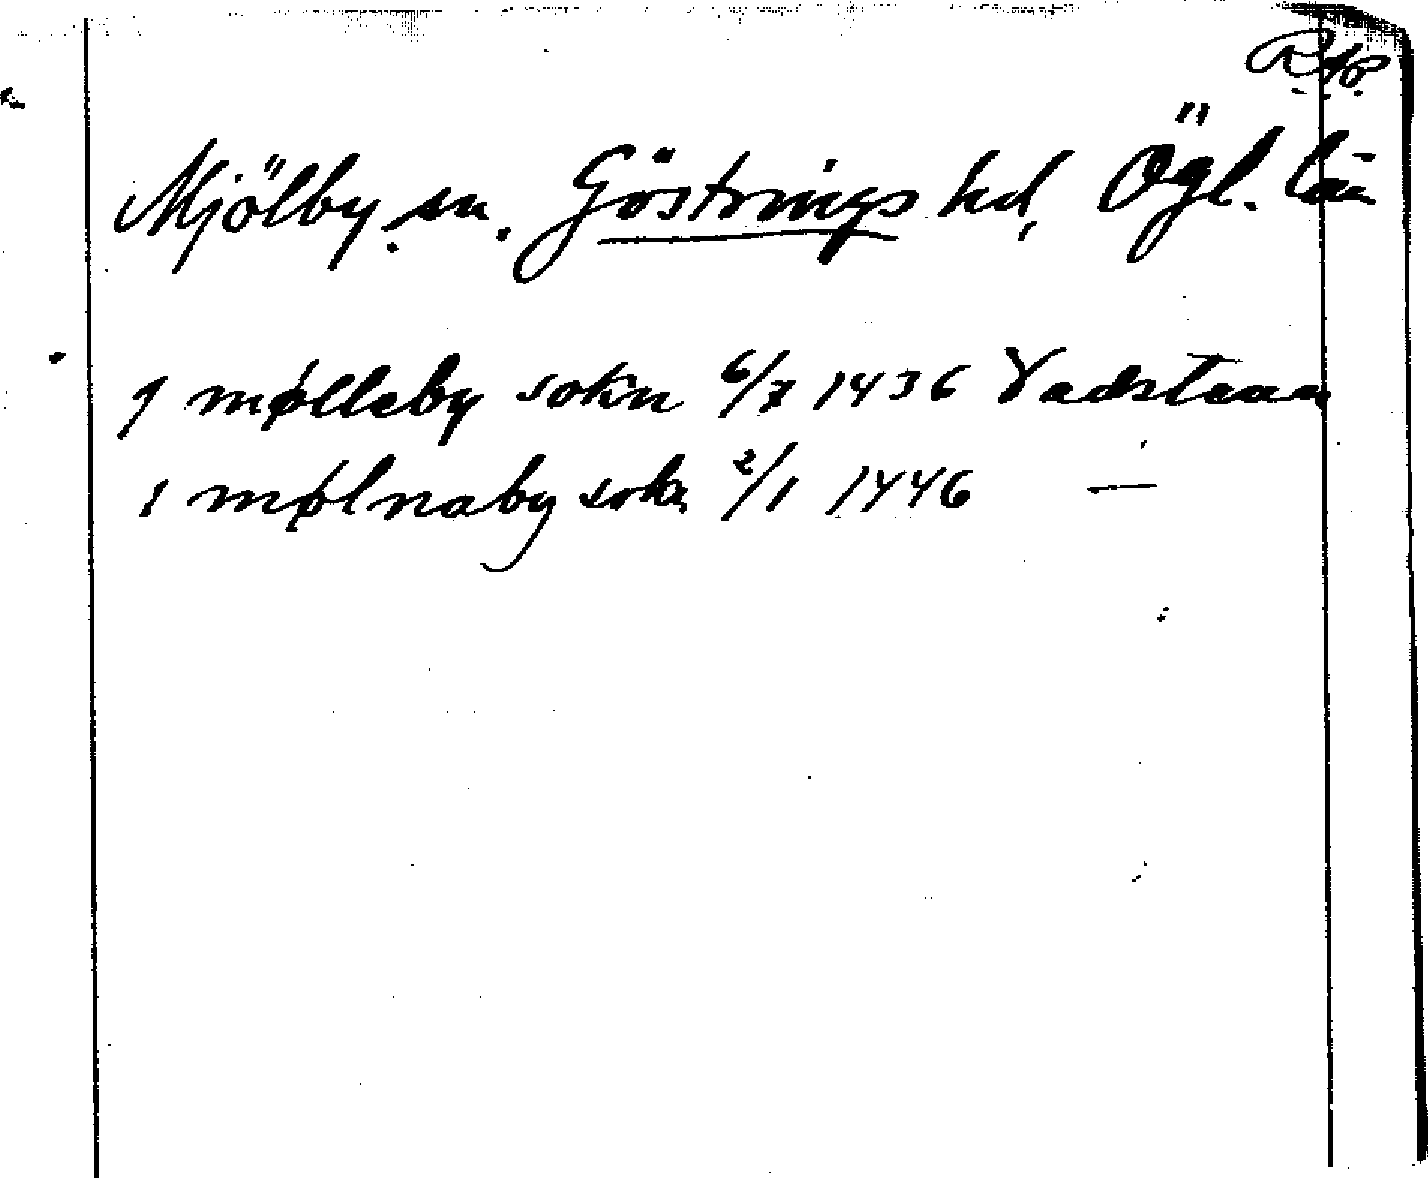 Rap.
Mjölby sn. Göstrings hd, Ögl. län
J mølleby sokn 6/7 1436 Vadstena
i mølnaby sokn 2/1 1446 —